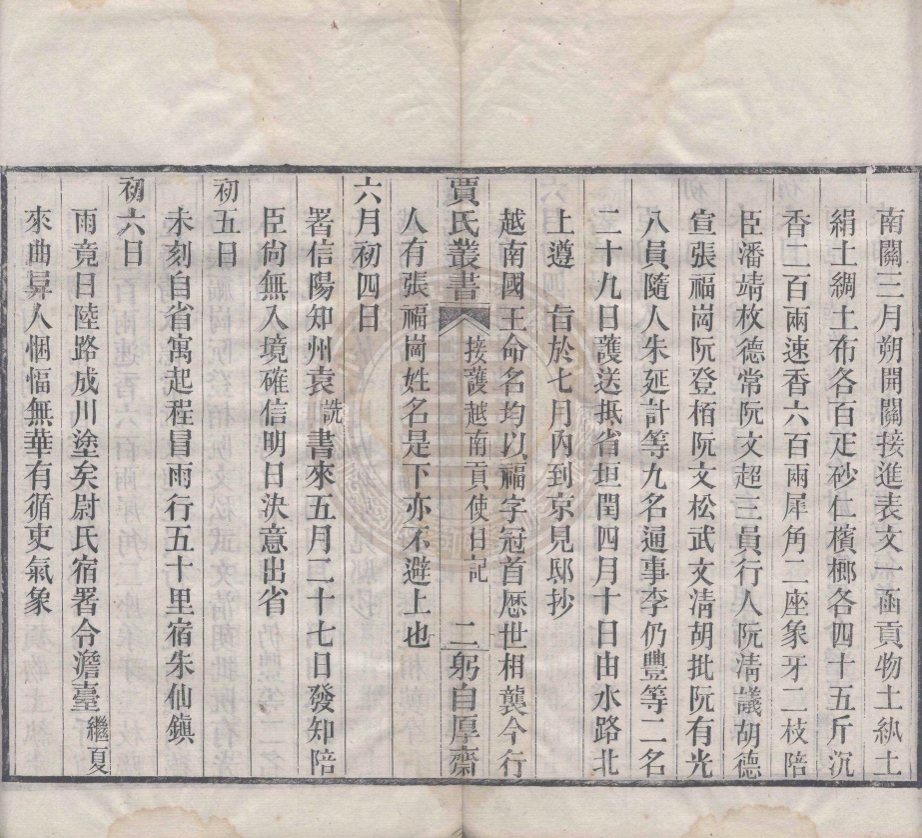 南關三月朔開關接進表文一函貢物土紈土
絹土綢土布各百疋砂仁檳榔各四十五斤沉
香二百兩速香六百兩犀角二座象牙二枝陪
臣潘靖枚德常阮文超三員行人阮淸議胡德
宣張福崗阮登栢阮文松武文淸胡批阮有光
八員隨人朱延計等九名通事李仍豐等二名
二十九日護送抵省垣閏四月十日由水路北
上遵 旨於七月內到京見邸抄
越南國王命名均以福字冠首歷世相襲今行
賈氏叢書 接護越南貢使日記 二 躬自厚齋
人有張福崗姓名是下亦不避上也
六月初四日
署信陽知州袁詵書來五月二十七日發知陪
臣尙無入境確信明日決意出省
初五日
未刻自省寓起程冒雨行五十里宿朱仙鎭
初六日
雨竟日陸路成川塗矣尉氏宿署令澹臺繼夏
來曲昇人悃愊無華有循吏氣象